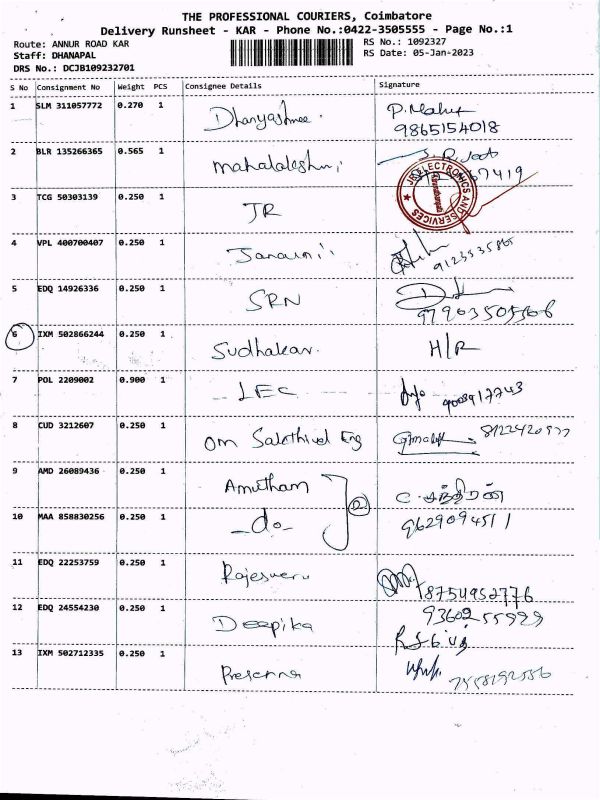 THE PROFESSIONAL COURIERS, Coimbatore
Delivery Runsheet - KAR - Phone No.:0422-3505555 - Page No.:1
Route: ANNUR ROAD KAR
Staff: DHANAPAL
DRS No.: DCJB109232701
RS No.: 1092327
RS Date: 05-Jan-2023
S No Consignment No Weight PCS Consignee Details Signature
1 SLM 311057772 0.270 1 Dhanyashree.
9865154018
2 BLR 135266365 0.565 1 mahalakshmi
67419
JR ELECTRONICS AND SERVICES
3 TCG 50303139 0.250 1 JR
4 VPL 400700407 0.250 1
5 EDQ 14926336 0.250 1 SRN
6 IXM 502866244 0.250 1 Sudhakar. H/R
7 POL 2209002 0.900 1 LEC
9003917743
8 CUD 3212607 0.250 1 Om Sakthivel Eng
9 AMD 26089436 0.250 1 Amutham
2
10 MAA 858830256 0.250 1 -do-
9629094511
11 EDQ 22253759 0.250 1
8754952776
12 EDQ 24554230 0.250 1 Deepika
13 IXM 502712335 0.250 1